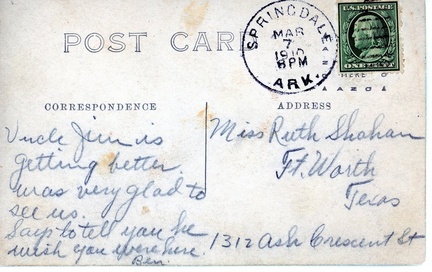 POST CARD
SPRINGDALE
MAR
7
1910
8PM
ARK.
U.S. POSTAGE
ONE CENT
HERE
CORRESPONDENCE
Uncle Jim is
getting better
was very glad to
see us.
Says to tell you he
wish you were here.
Ben.
ADDRESS
Miss Ruth Shahan
Ft. Worth
Texas
1312 Ash Crescent St